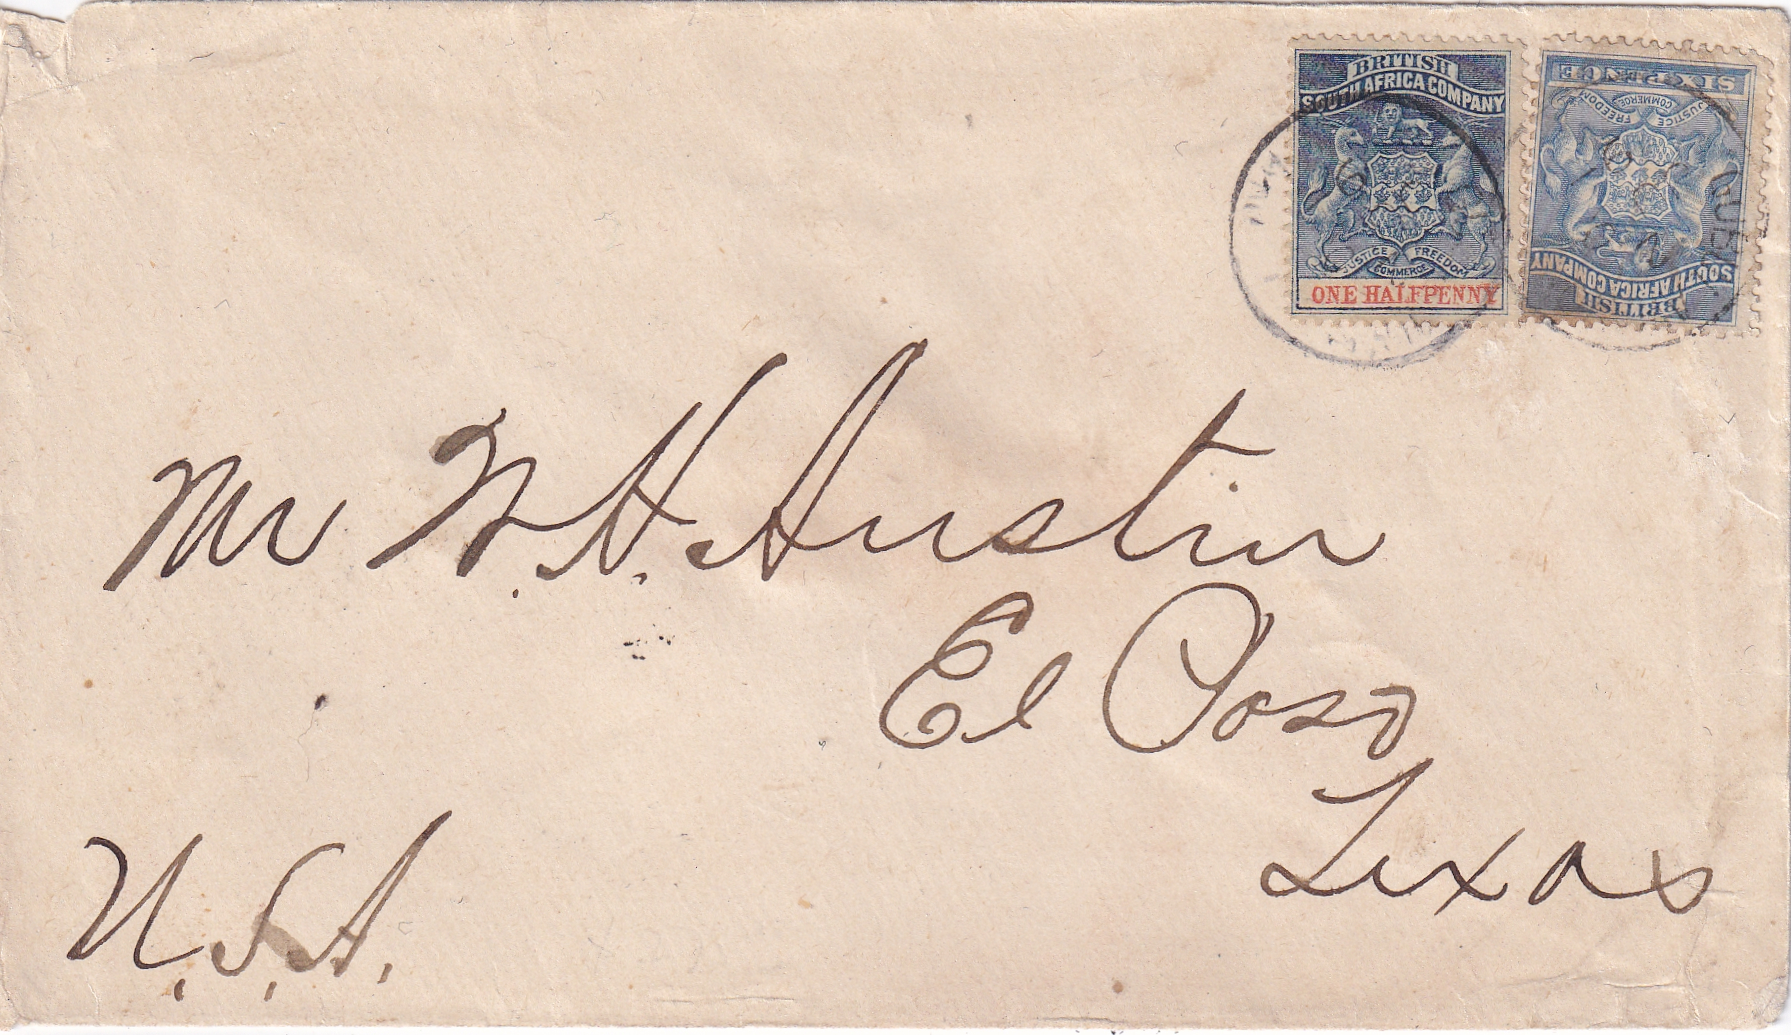 BRITISH
SOUTH AFRICA COMPANY
JUSTICE FREEDOM
COMMERCE
ONE HALFPENNY
BRITISH
SOUTH AFRICA COMPANY
JUSTICE FREEDOM
COMMERCE
SIX PENCE
Mr W. H. Austin
El Paso
Texas
U.S.A.